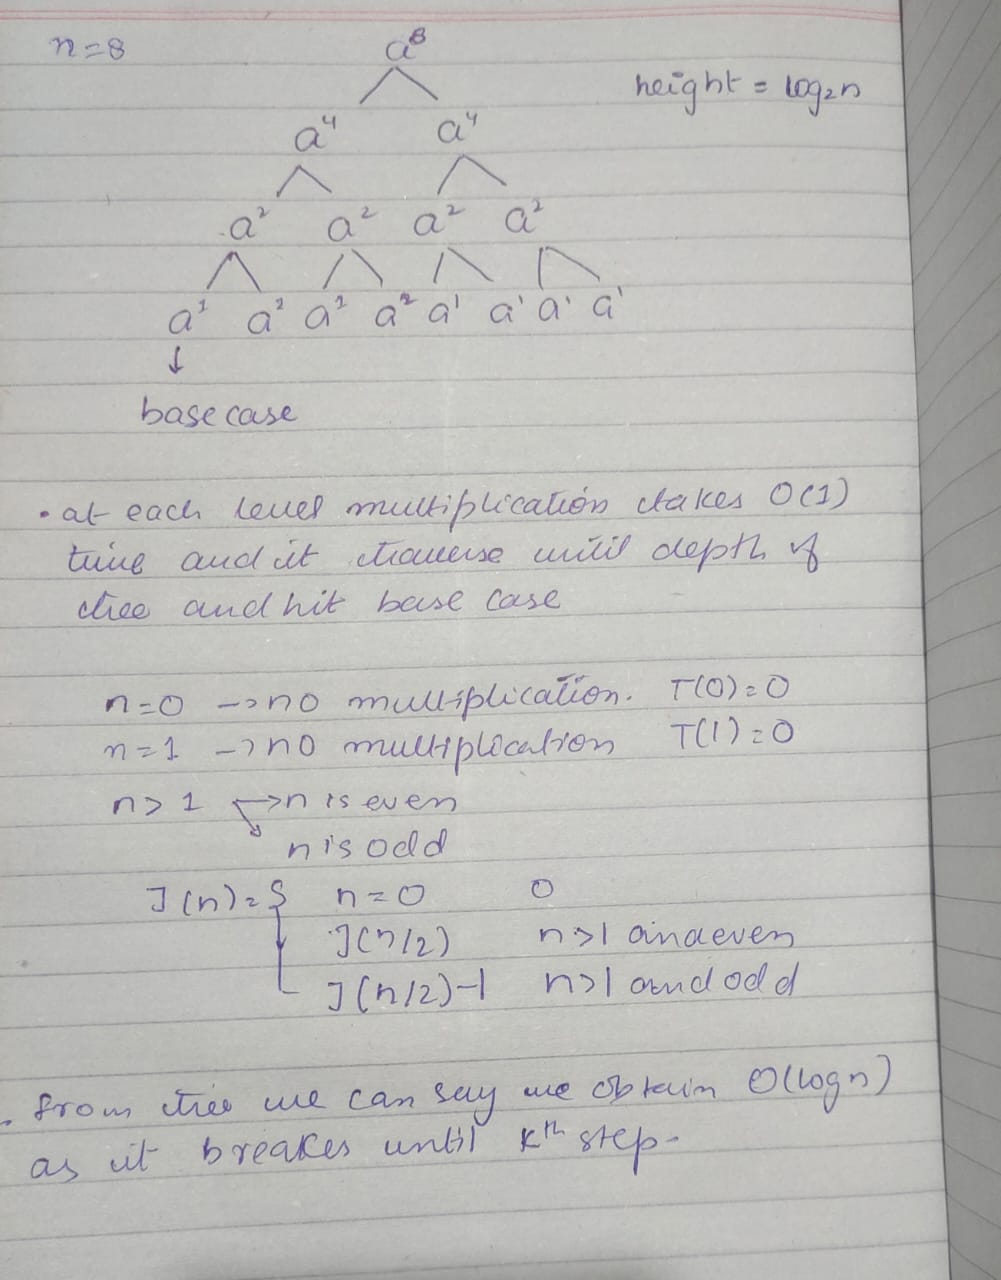 n=8 a⁸
height = log₂n
a⁴ a⁴
a² a² a² a²
a¹ a² a² a² a¹ a¹ a¹ a¹
↓
base case
• at each level multiplication takes O(1)
time and it traverse until depth of
tree and hit base case
n=0 → no multiplication. T(0)=0
n=1 → no multiplication T(1)=0
n>1 → n is even
n is odd
T(n)= { n=0 0
T(n/2) n>1 and even
T(n/2)-1 n>1 and odd
. from tree we can say we obtain Θ(logn)
as it breakes until kᵗʰ step.